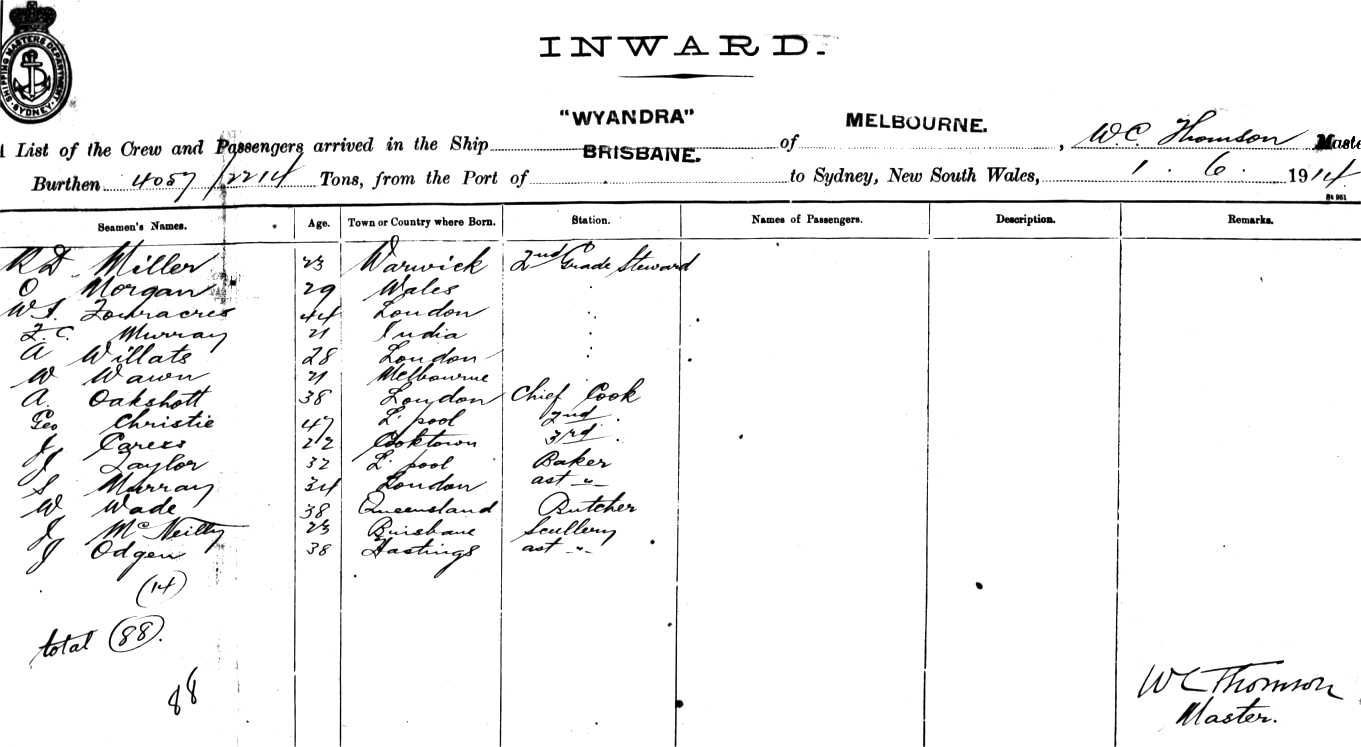 SHIPPING MASTERS DEPARTMENT SYDNEY
INWARD.
"WYANDRA" MELBOURNE.
A List of the Crew and Passengers arrived in the Ship of , W. C. Thomson Maste
BRISBANE.
Burthen 4057/2214 Tons, from the Port of to Sydney, New South Wales, 1. 6. 1914.
St 961
Seamen's Names. Age. Town or Country where Born. Station. Names of Passengers. Description. Remarks.
R D Miller 23 Warwick 2nd Grade Steward
O Morgan 29 Wales "
W S Fouracres 44 London "
F. C. Murray 21 India "
A Willats 28 London "
W Wawn 21 Melbourne
A. Oakshott 38 London Chief Cook
Geo Christie 47 L'pool 2nd "
J Carees 22 Cooktown 3rd "
J Taylor 32 L'pool Baker
S Murray 34 London ast -"-
W Wade 38 Queensland Butcher
J McNeilly 23 Brisbane Scullery
J Odgen 38 Hastings ast -"-
(14)
total (88).
88
W C Thomson
Master.